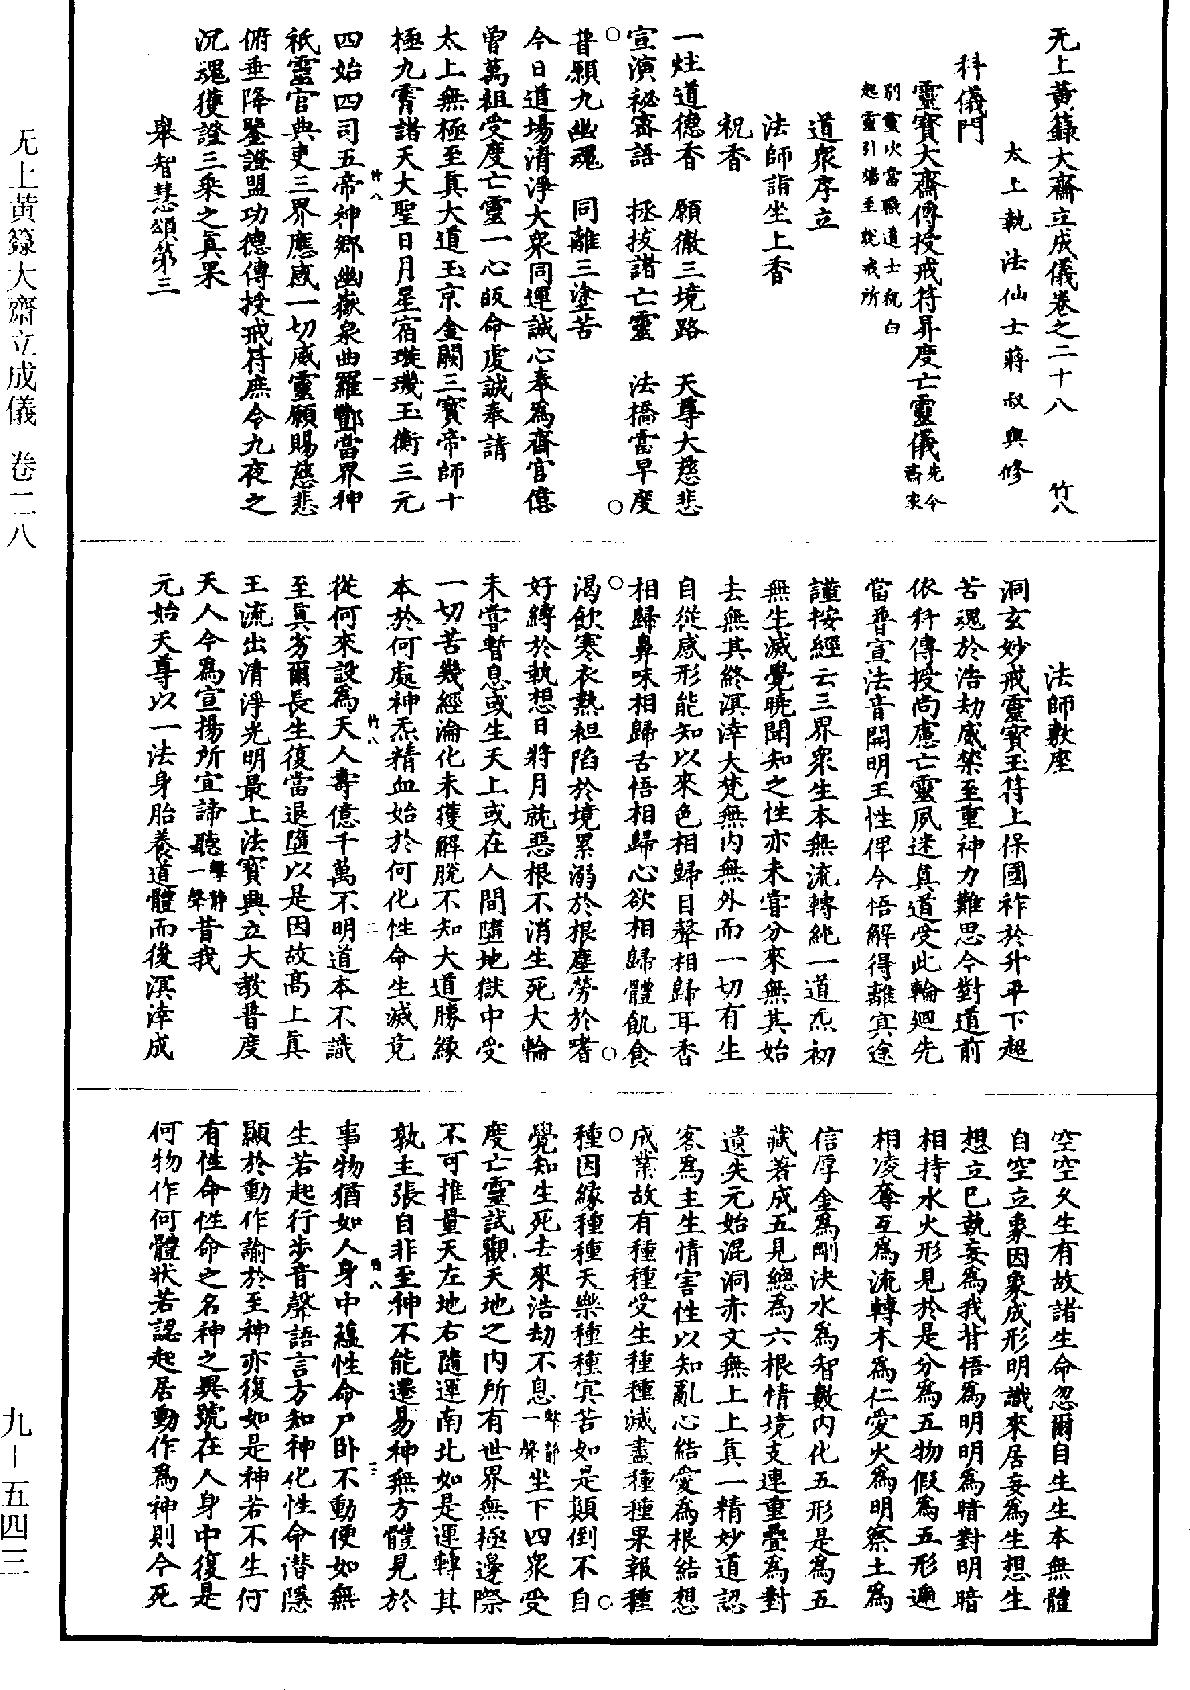 无上黃籙大齋立成儀卷之二十八　竹八
太上執法仙士蔣叔輿修
科儀門
靈寶大齋傳授戒符昇度亡靈儀先令齋家
別靈次當職道士祝白
起靈引端至説戒所
道衆序立
法師詣坐上香
祝香
一炷道德香　願徹三境路　天尊大慈悲
宣演秘密語　拯拔諸亡靈　法橋當早度
普願九幽魂　同離三塗苦
今日道場清淨大衆同運誠心奉爲齋官僖
曾萬祖受度亡靈一心皈命虔誠奉請
太上無極至真大道玉京金闕三寶帝師十
極九霄諸天大聖日月星宿璇璣玉衡三元
四始四司五帝神鄉幽嶽泉曲羅酆當界神
祇靈官典吏三界應感一切威靈願賜慈悲
俯垂降鑒證盟功德傳授戒符庶令九夜之
沉魂獲證三乘之真果
舉智慧頌第三
法師敷座
洞玄妙戒靈寶玉符上保國祚於升平下超
苦魂於浩劫威禁至重神力難思今對道前
依科傳授尚慮亡靈夙迷真道受此輪迴先
當普宣法音開明王性俾令悟解得離冥途
謹按經云三界衆生本無流轉純一道炁初
無生滅覺曉聞知之性亦未嘗分來無其始
去無其終溟涬大梵無内無外而一切有生
自從感形能知以來色相歸目聲相歸耳香
相歸鼻味相歸舌悟相歸心欲相歸體飢食
渴飲寒衣熱袒陷於境累溺於根塵勞於嗜
好縛於執想日將月就惡根不消生死大輪
未嘗暫息或生天上或在人間墮地獄中受
一切苦幾經淪化未獲解脫不知大道勝緣
本於何處神炁精血始於何化性命生滅竟
從何來設爲天人壽億千萬不明道本不識
至真劣爾長生復當退墮以是因故高上真
王流出清淨光明最上法寶興立大教普度
天人今爲宣揚所宜諦聽擊靜一聲昔我
元始天尊以一法身胎養道體而後溟涬成
空空久生有故諸生命忽爾自生生本無體
自空立象因象成形明識來居妄爲生想生
想立已執妄爲我背悟爲明明爲暗對明暗
相持水火形見於是分爲五物假爲五形遞
相凌奪互爲流轉木爲仁愛火爲明察土爲
信厚金爲剛決水爲智數内化五形是爲五
藏著成五見總爲六根情境支連重疊爲對
遺失元始混洞赤文無上上真一精妙道認
客爲主生情害性以知亂心結愛爲根結想
成業故有種種受生種種滅盡種種果報種
種因緣種種天樂種種冥苦如是顛倒不自
覺知生死去來浩劫不息擊靜一聲坐下四衆受
度亡靈試觀天地之内所有世界無極邊際
不可推量天左地右隨運南北如是運轉其
孰主張自非至神不能遷易神無方體見於
事物猶如人身中蘊性命尸卧不動便如無
生若起行步音聲語言方知神化性命潛隱
顯於動作諭於至神亦復如是神若不生何
有性命性命之名神之異號在人身中復是
何物作何體狀若認起居動作爲神則今死
无上黃籙大齋立成儀　卷二八
九—五四三